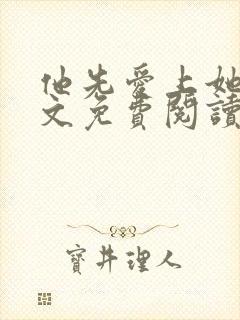 他先愛上她
文免費閱讀
寶井理人